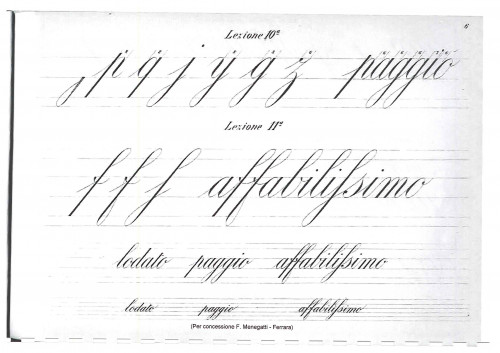 6
Lezione 10ª
p q j y g z paggio
Lezione 11ª
f f ſ affabiliſsimo
lodato paggio affabiliſsimo
lodato paggio affabiliſsimo
(Per concessione F. Menegatti - Ferrara)